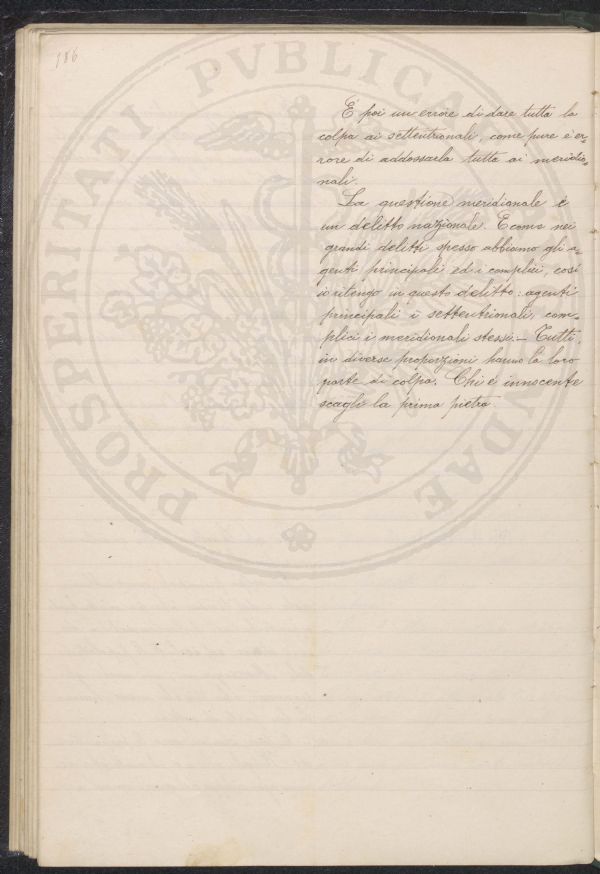 186
PROSPERITATI PVBLICAE AVGENDAE
È poi un errore di dare tutta la
colpa ai settentrionali, come pure è er-
rore di addossarla tutta ai meridio-
nali.
La questione meridionale è
un delitto nazionale. E come nei
grandi delitti spesso abbiamo gli a-
genti principali ed i complici, così
io ritengo in questo delitto: agenti
principali i settentrionali, com-
plici i meridionali stessi.— Tutti,
in diverse proporzioni hanno la loro
parte di colpa. Chi è innocente
scagli la prima pietra.